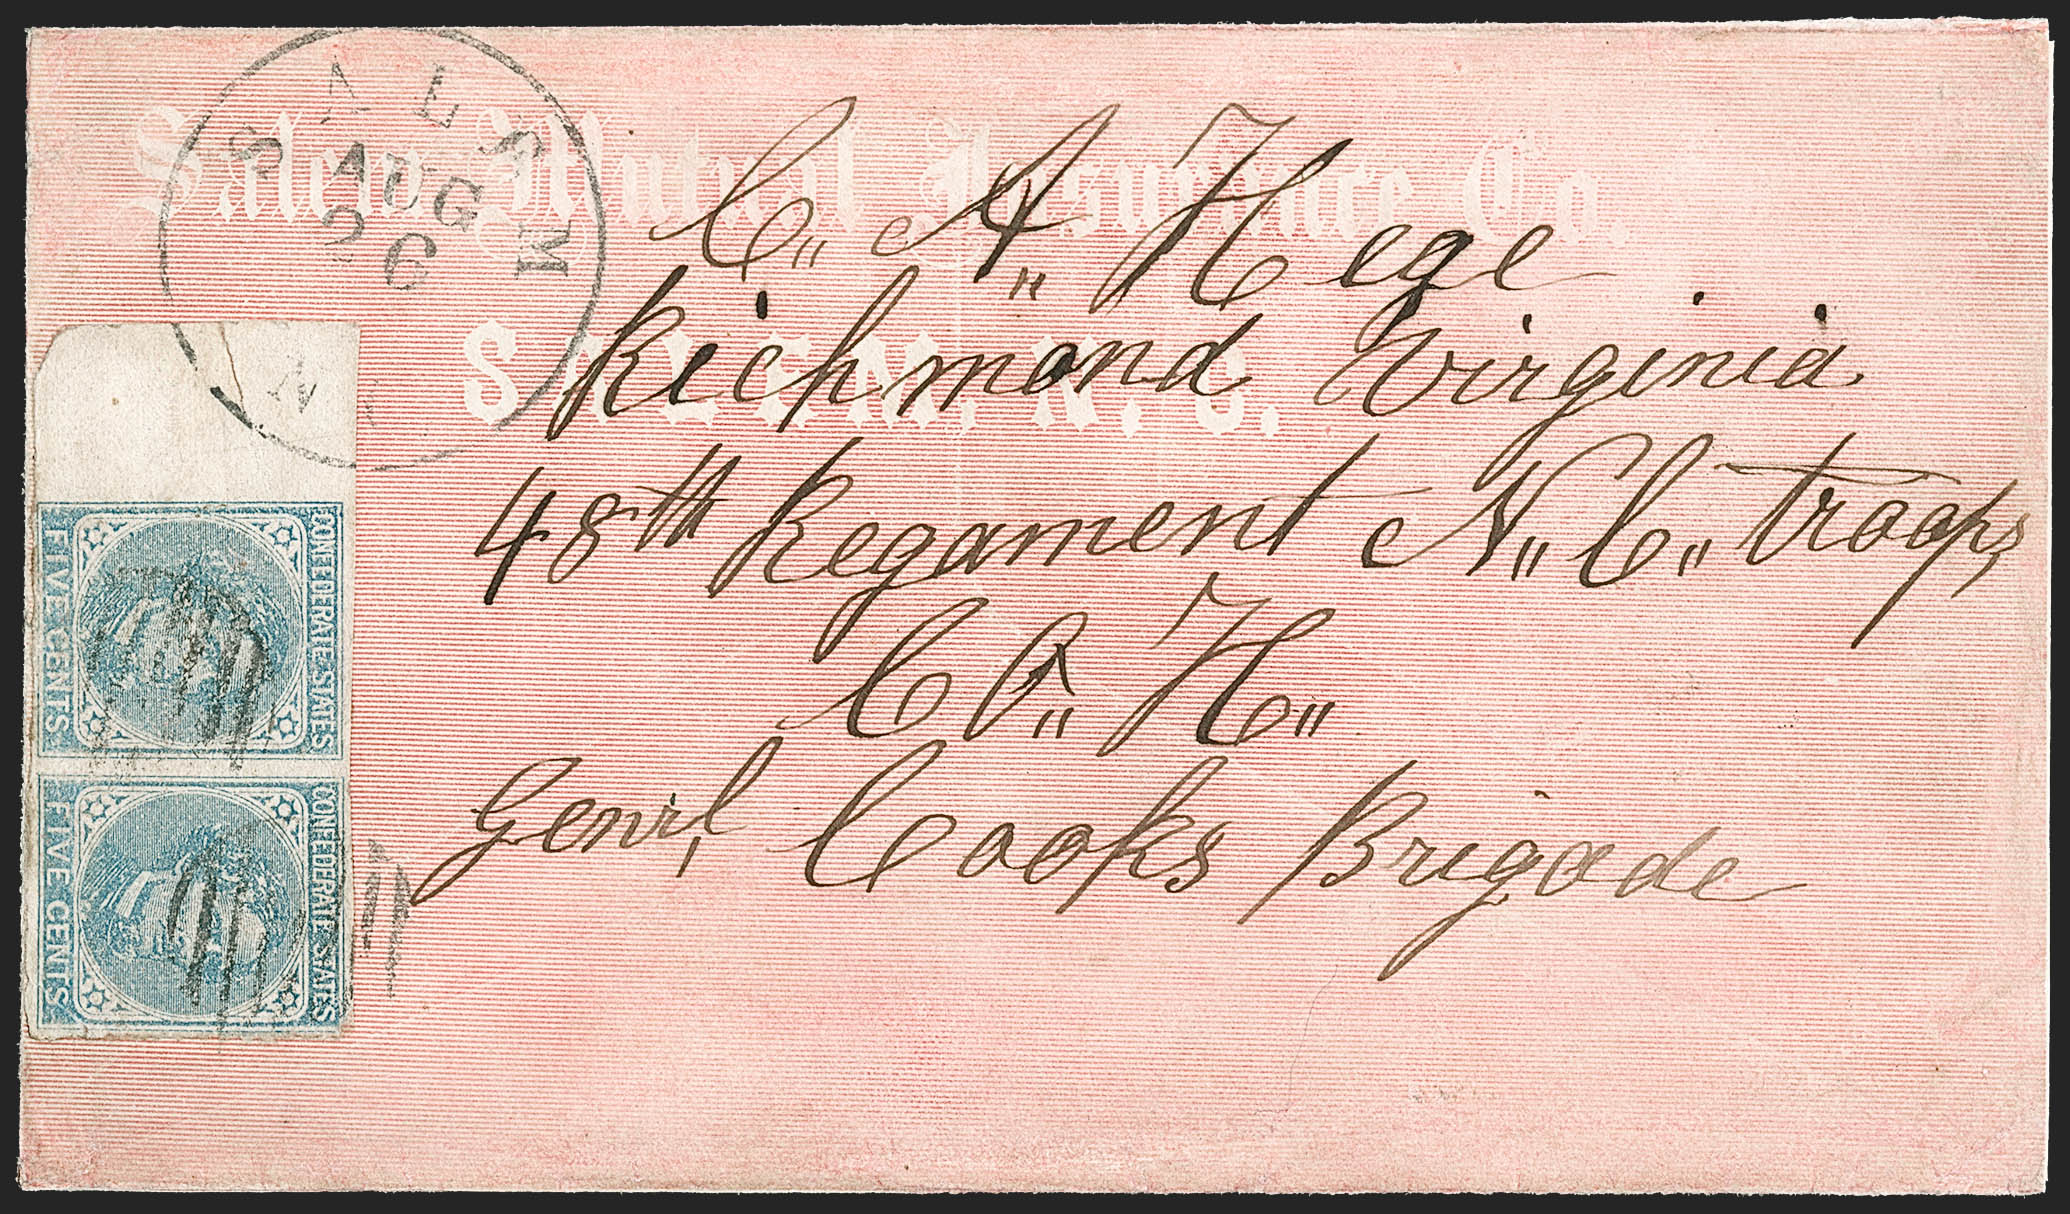 SALEM
AUG
26
N
Salem Mutual Insurance Co.
SALEM, N. C.
C„ A„ Hege
Richmond Virginia
48th Regament N„ C„ troops
CO„ H„
Genrl, Cooks Brigade
CONFEDERATE STATES
FIVE CENTS
CONFEDERATE STATES
FIVE CENTS